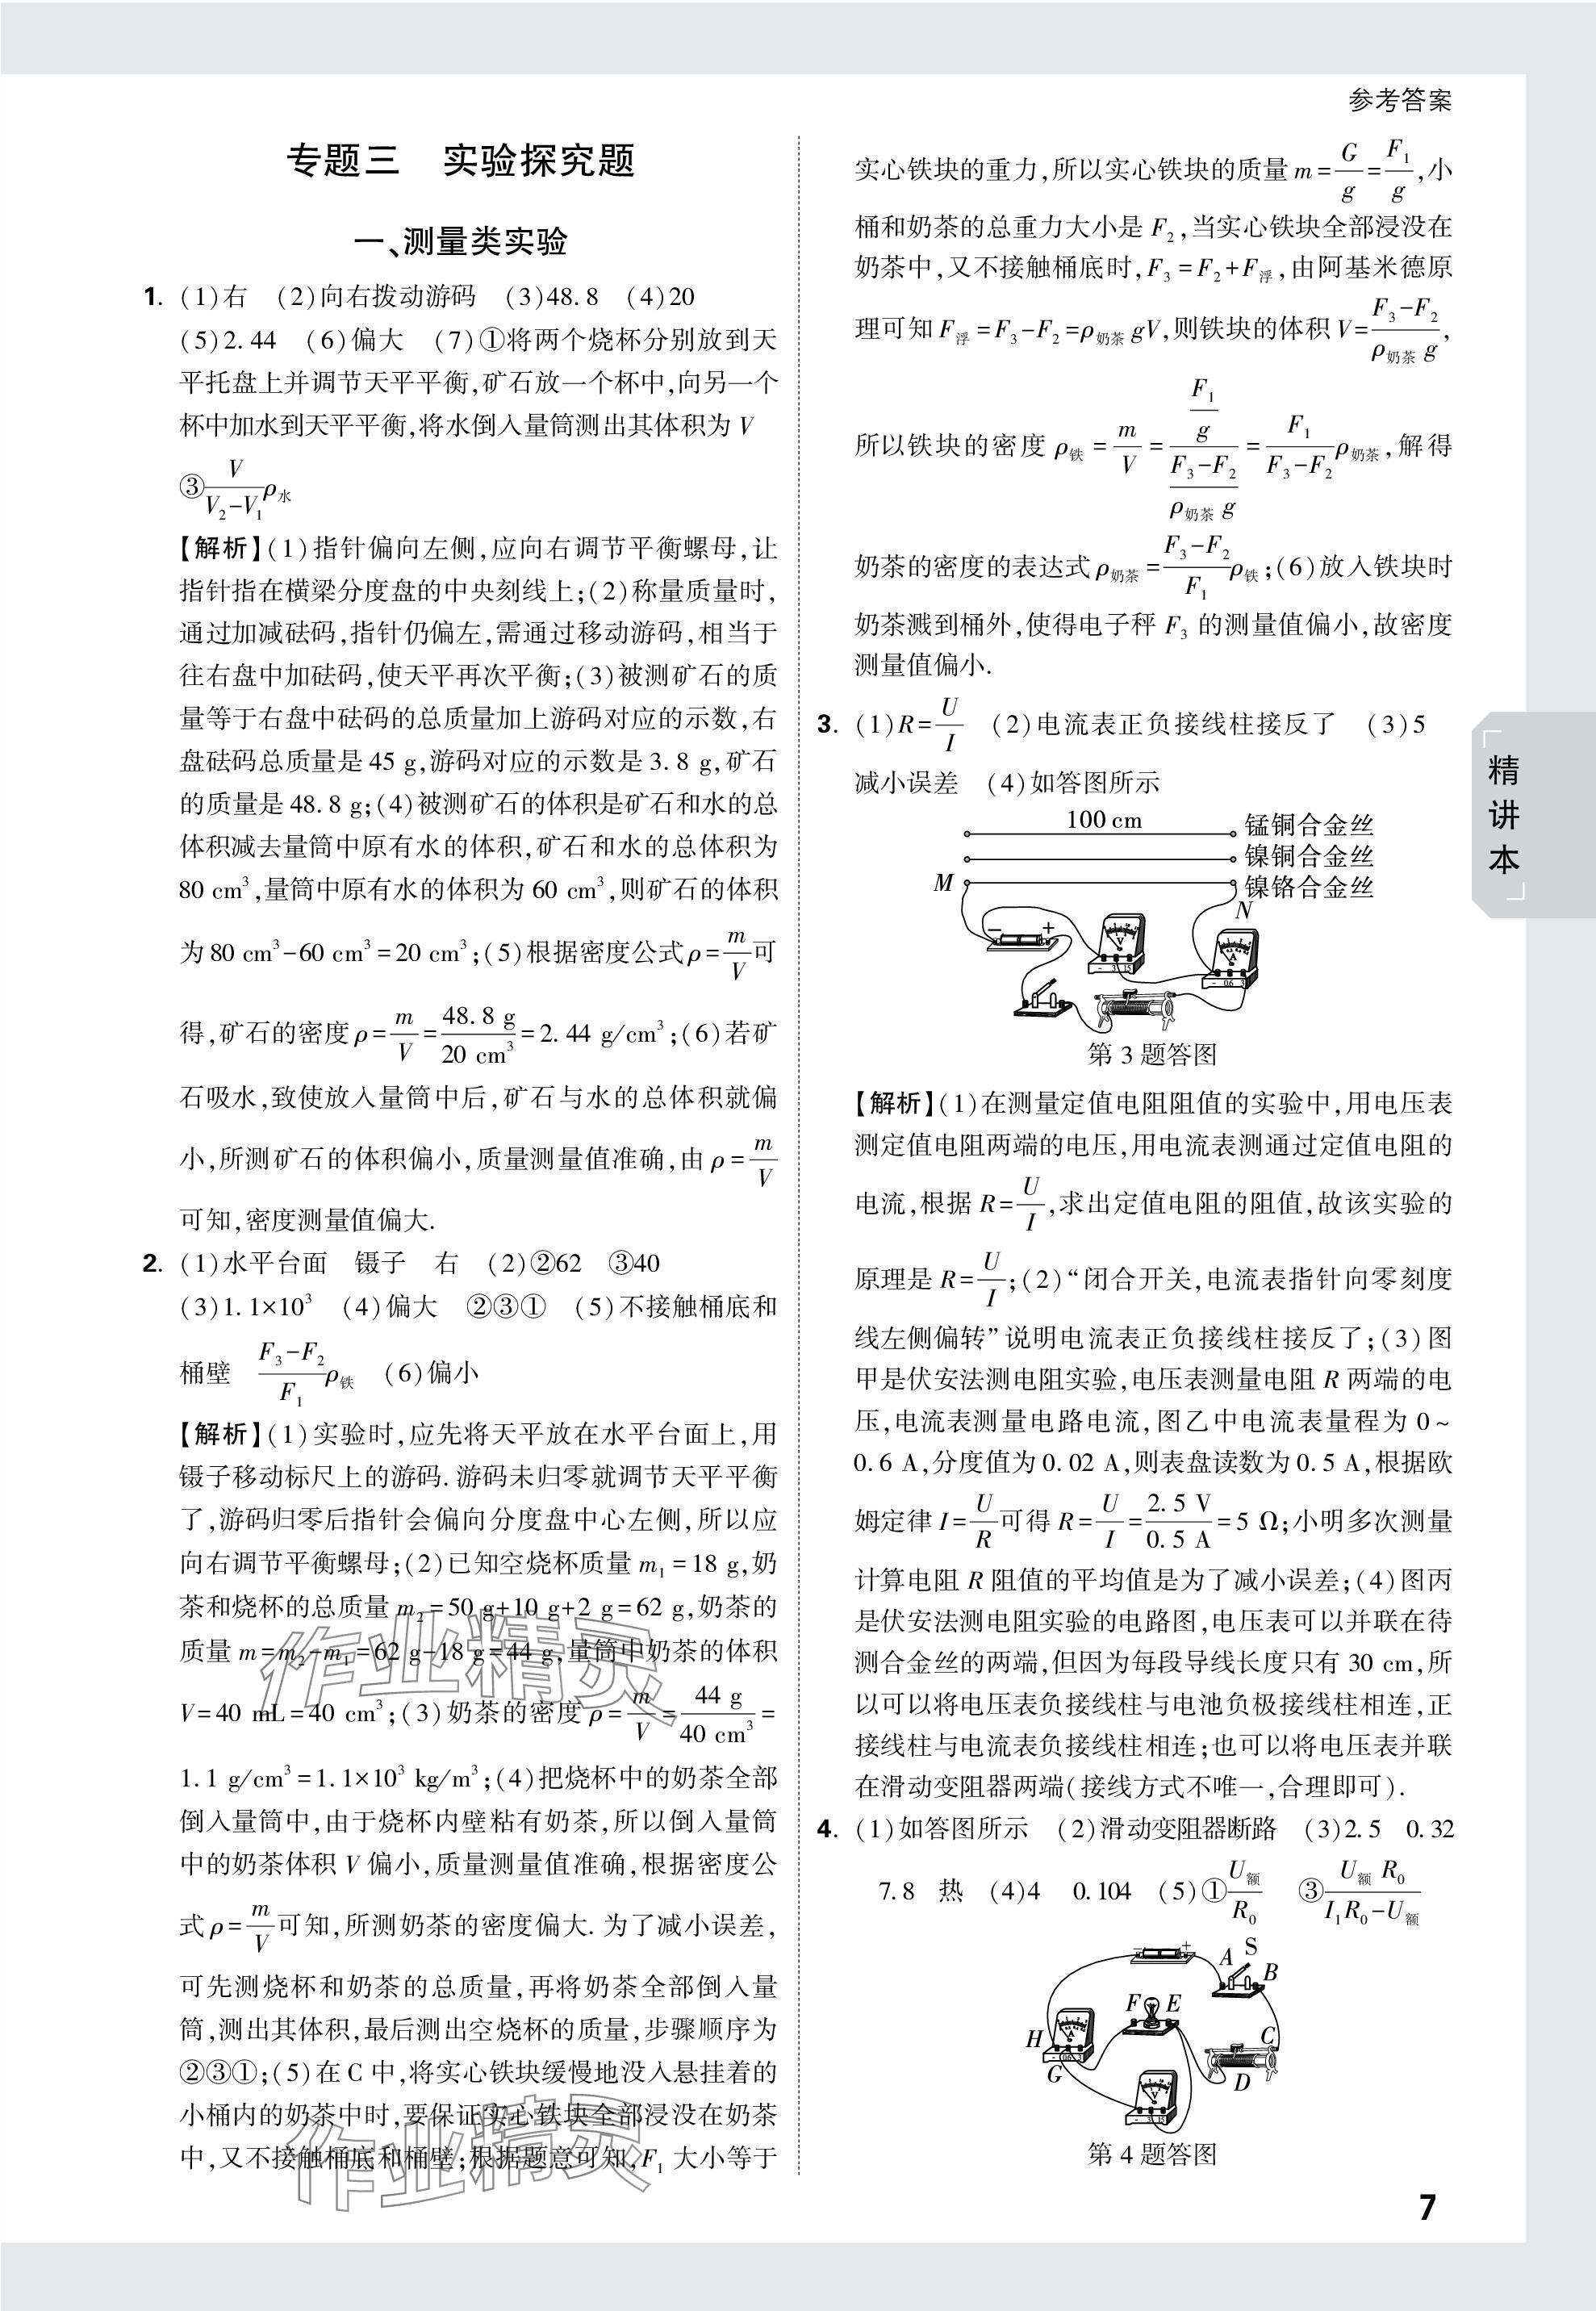 参考答案
专题三　实验探究题
一、测量类实验
1. (1)右　(2)向右拨动游码　(3)48.8　(4)20
(5)2.44　(6)偏大　(7)①将两个烧杯分别放到天
平托盘上并调节天平平衡,矿石放一个杯中,向另一个
杯中加水到天平平衡,将水倒入量筒测出其体积为 V
③V/(V₂-V₁)ρ水
【解析】(1)指针偏向左侧,应向右调节平衡螺母,让
指针指在横梁分度盘的中央刻线上;(2)称量质量时,
通过加减砝码,指针仍偏左,需通过移动游码,相当于
往右盘中加砝码,使天平再次平衡;(3)被测矿石的质
量等于右盘中砝码的总质量加上游码对应的示数,右
盘砝码总质量是 45 g,游码对应的示数是 3.8 g,矿石
的质量是 48.8 g;(4)被测矿石的体积是矿石和水的总
体积减去量筒中原有水的体积,矿石和水的总体积为
80 cm³,量筒中原有水的体积为 60 cm³,则矿石的体积
为 80 cm³-60 cm³=20 cm³;(5)根据密度公式 ρ=m/V可
得,矿石的密度 ρ=m/V=48.8 g/20 cm³=2.44 g/cm³;(6)若矿
石吸水,致使放入量筒中后,矿石与水的总体积就偏
小,所测矿石的体积偏小,质量测量值准确,由 ρ=m/V
可知,密度测量值偏大.
2. (1)水平台面　镊子　右　(2)②62　③40
(3)1.1×10³　(4)偏大　②③①　(5)不接触桶底和
桶壁　(F₃-F₂)/F₁ρ铁　(6)偏小
【解析】(1)实验时,应先将天平放在水平台面上,用
镊子移动标尺上的游码.游码未归零就调节天平平衡
了,游码归零后指针会偏向分度盘中心左侧,所以应
向右调节平衡螺母;(2)已知空烧杯质量 m₁=18 g,奶
茶和烧杯的总质量 m₂=50 g+10 g+2 g=62 g,奶茶的
质量 m=m₂-m₁=62 g-18 g=44 g,量筒中奶茶的体积
V=40 mL=40 cm³;(3)奶茶的密度 ρ=m/V=44 g/40 cm³=
1.1 g/cm³=1.1×10³ kg/m³;(4)把烧杯中的奶茶全部
倒入量筒中,由于烧杯内壁粘有奶茶,所以倒入量筒
中的奶茶体积 V 偏小,质量测量值准确,根据密度公
式 ρ=m/V可知,所测奶茶的密度偏大.为了减小误差,
可先测烧杯和奶茶的总质量,再将奶茶全部倒入量
筒,测出其体积,最后测出空烧杯的质量,步骤顺序为
②③①;(5)在 C 中,将实心铁块缓慢地没入悬挂着的
小桶内的奶茶中时,要保证实心铁块全部浸没在奶茶
中,又不接触桶底和桶壁;根据题意可知,F₁ 大小等于
实心铁块的重力,所以实心铁块的质量 m=G/g=F₁/g,小
桶和奶茶的总重力大小是 F₂,当实心铁块全部浸没在
奶茶中,又不接触桶底时,F₃=F₂+F浮,由阿基米德原
理可知 F浮=F₃-F₂=ρ奶茶gV,则铁块的体积 V=(F₃-F₂)/(ρ奶茶g),
所以铁块的密度 ρ铁=m/V=(F₁/g)/((F₃-F₂)/(ρ奶茶g))=F₁/(F₃-F₂)ρ奶茶,解得
奶茶的密度的表达式 ρ奶茶=(F₃-F₂)/F₁ρ铁;(6)放入铁块时
奶茶溅到桶外,使得电子秤 F₃ 的测量值偏小,故密度
测量值偏小.
3. (1)R=U/I　(2)电流表正负接线柱接反了　(3)5
减小误差　(4)如答图所示
100 cm
锰铜合金丝
镍铜合金丝
M
镍铬合金丝
N
- +
V
- 3 15
A
- 0.6 3
第 3 题答图
【解析】(1)在测量定值电阻阻值的实验中,用电压表
测定值电阻两端的电压,用电流表测通过定值电阻的
电流,根据 R=U/I,求出定值电阻的阻值,故该实验的
原理是 R=U/I;(2)“闭合开关,电流表指针向零刻度
线左侧偏转”说明电流表正负接线柱接反了;(3)图
甲是伏安法测电阻实验,电压表测量电阻 R 两端的电
压,电流表测量电路电流,图乙中电流表量程为 0~
0.6 A,分度值为 0.02 A,则表盘读数为 0.5 A,根据欧
姆定律 I=U/R可得 R=U/I=2.5 V/0.5 A=5 Ω;小明多次测量
计算电阻 R 阻值的平均值是为了减小误差;(4)图丙
是伏安法测电阻实验的电路图,电压表可以并联在待
测合金丝的两端,但因为每段导线长度只有 30 cm,所
以可以将电压表负接线柱与电池负极接线柱相连,正
接线柱与电流表负接线柱相连;也可以将电压表并联
在滑动变阻器两端(接线方式不唯一,合理即可).
4. (1)如答图所示　(2)滑动变阻器断路　(3)2.5　0.32
7.8　热　(4)4　0.104　(5)①U额/R₀　③U额R₀/(I₁R₀-U额)
- +
A S B
F E
H
A
- 0.6 3
G
C
D
V
- 3 15
第 4 题答图
精讲本
作业精灵
作业精灵
7